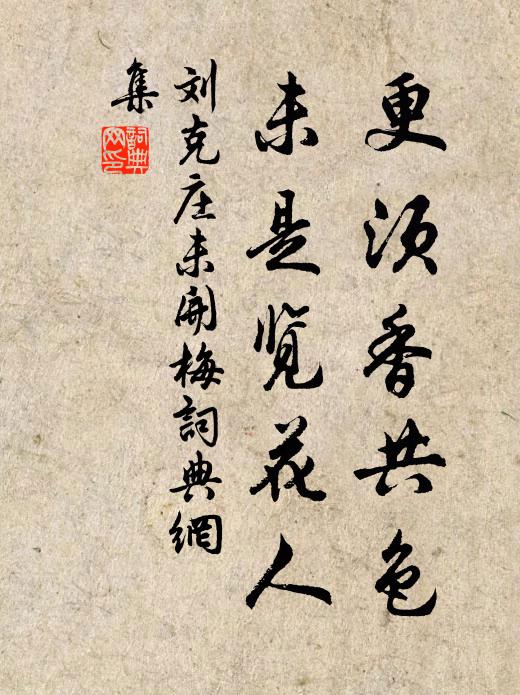 更须香共色
未是览花人
刘克庄未開梅詞典網
集
詞典
网印